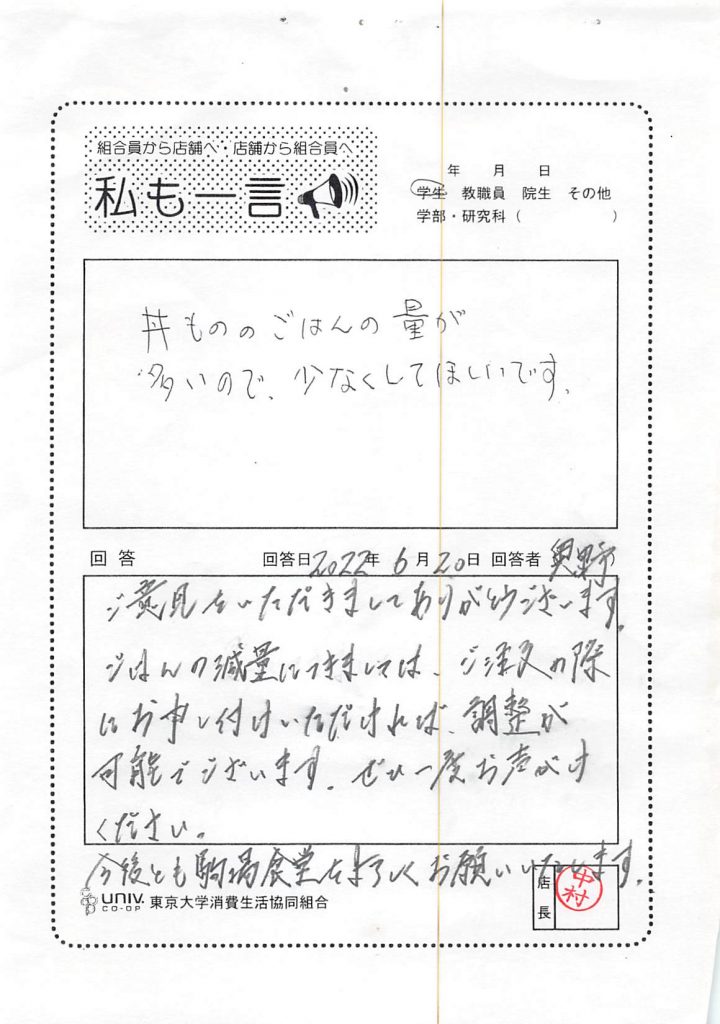 組合員から店舗へ 店舗から組合員へ
私も一言
年 月 日
学生 教職員 院生 その他
学部・研究科（ ）
丼もののごはんの量が
多いので、少なくしてほしいです。
回答 回答日2022年6月20日 回答者
ご意見をいただきましてありがとうございます。
ごはんの減量につきましては、ご注文の際
にお申し付けいただければ、調整が
可能でございます。ぜひ一度お声がけ
ください。
今後とも駒場食堂をよろしくお願いいたします。
UNIV. CO-OP 東京大学消費生活協同組合
店長 中村